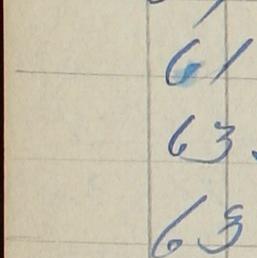 61
63.
63